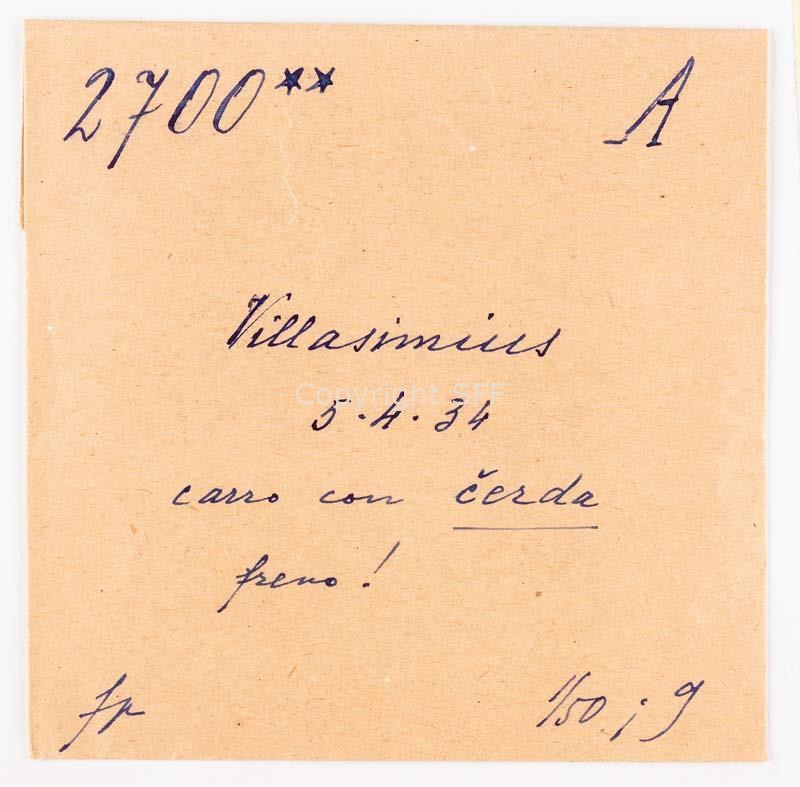 2700** A
Villasimius
Copyright SFF
5.4.34
carro con čerda
freno!
fr 1/50 ; 9